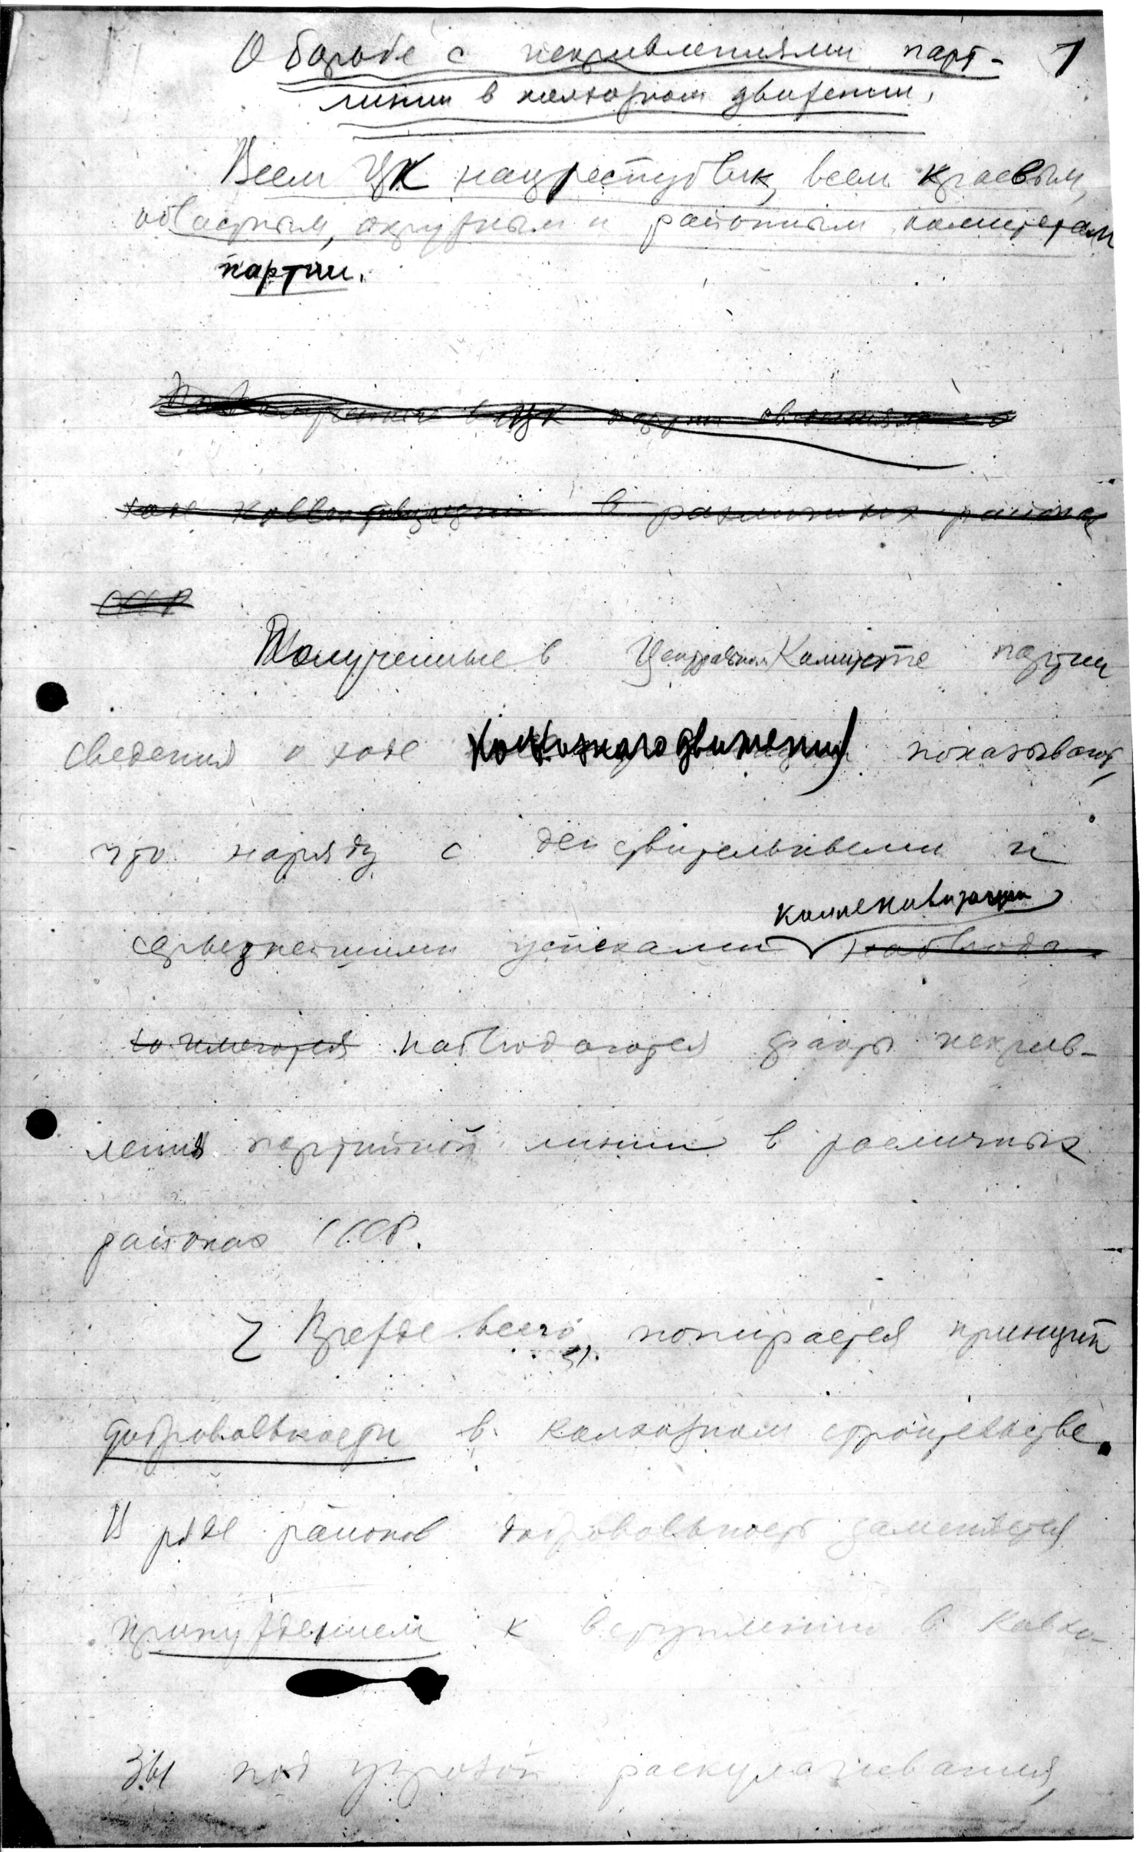 О борьбе с искривлениями парт- 1
линии в колхозном движении.
Всем ЦК нацреспублик, всем краевым,
областным, окружным и районным комитетам
партии.
в ЦК партии
ходе коллективизации в различных районах
СССР
Полученные в Центральном Комитете партии
сведения о ходе колхозного движения показывают,
что наряду с действительными и
коллективизации
серьезнейшими успехами наблюда
наблюдаются факты искрив-
ления партийной линии в различных
районах СССР.
Прежде всего попирается принцип
добровольности в колхозном строительстве.
В ряде районов добровольность заменяется
принуждением к вступлению в колхо-
зы под угрозой раскулачивания,